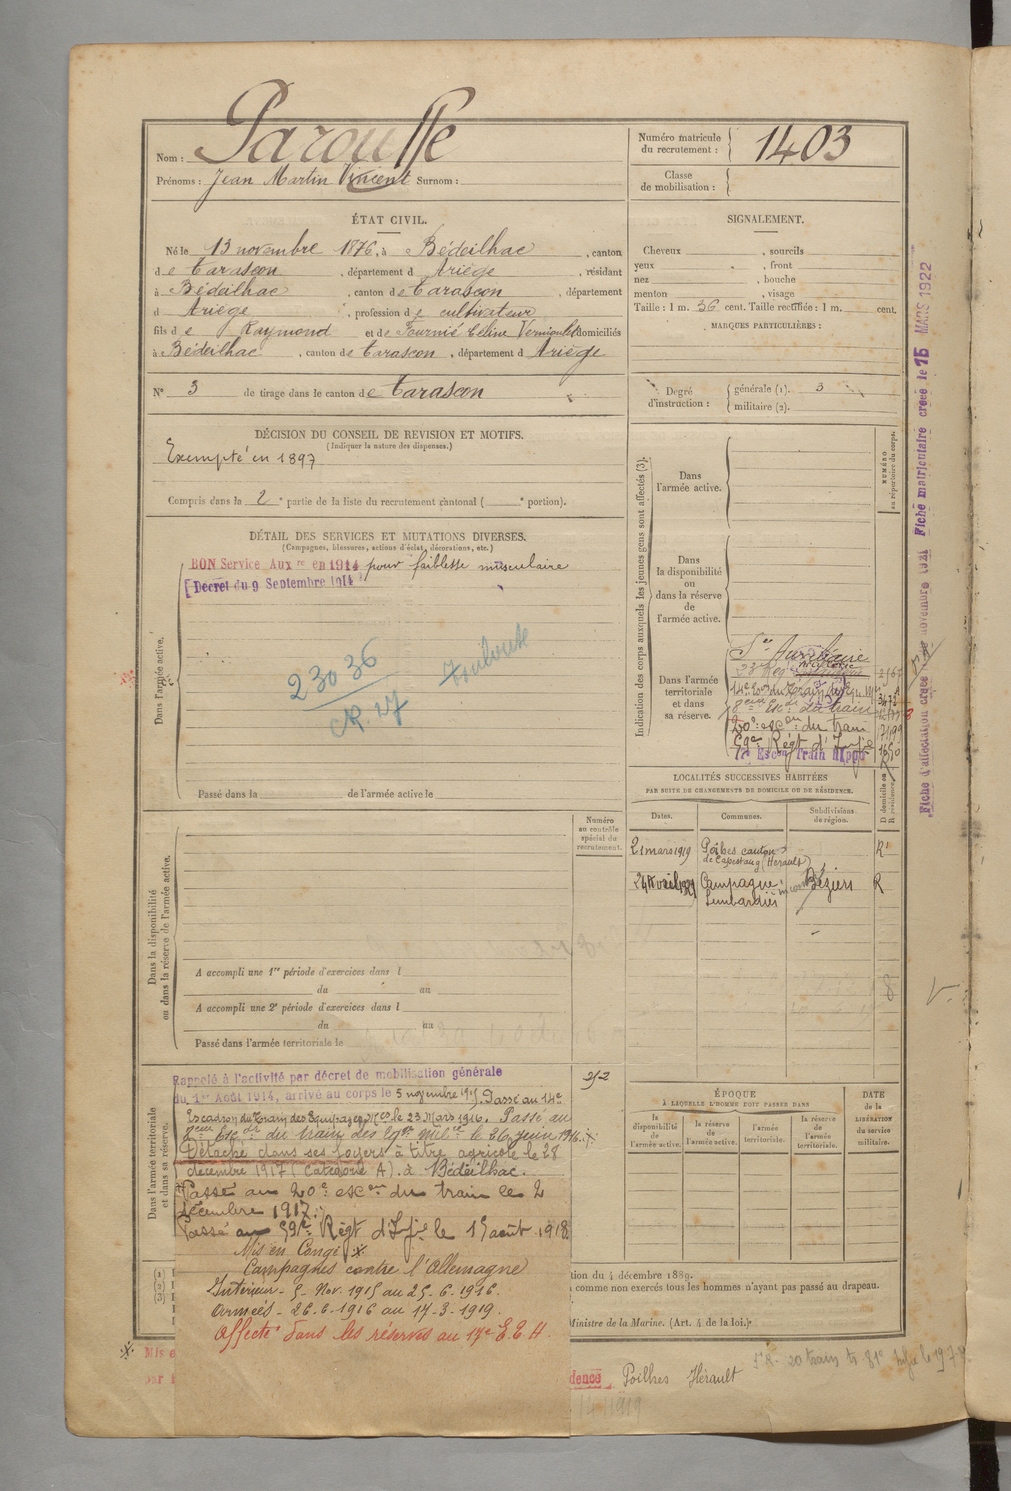 Nom : Parousse
Prénoms : Jean Martin Vincent Surnom :
Numéro matricule du recrutement : 1403
Classe de mobilisation :
ÉTAT CIVIL.
Né le 13 novembre 1876, à Bédeilhac, canton
de Tarascon, département d Ariège, résidant
à Bédeilhac, canton de Tarascon, département
d Ariège, profession de cultivateur
fils de Raymond et de Fournié Céline domiciliés
à Bédeilhac, canton de Tarascon, département d Ariège
N° 3 de tirage dans le canton de Tarascon
SIGNALEMENT.
Cheveux , sourcils
yeux , front
nez , bouche
menton , visage
Taille : 1 m. 56 cent. Taille rectifiée : 1 m. cent.
MARQUES PARTICULIÈRES :
Degré d'instruction : générale (1). 3
militaire (2).
DÉCISION DU CONSEIL DE REVISION ET MOTIFS.
(Indiquer la nature des dispenses.)
Exempté en 1897
Compris dans la 2e partie de la liste du recrutement cantonal ( e portion).
DÉTAIL DES SERVICES ET MUTATIONS DIVERSES.
(Campagnes, blessures, actions d'éclat, décorations, etc.)
BON Service Auxre en 1914 pour faiblesse musculaire
Décret du 9 Septembre 1914
23036
Toulouse
CR. 17
Dans l'armée active.
Passé dans la de l'armée active le
Indication des corps auxquels les jeunes gens sont affectés (3).
Dans l'armée active.
NUMÉRO au répertoire du corps.
Dans la disponibilité ou dans la réserve de l'armée active.
Dans l'armée territoriale et dans sa réserve.
Sce Auxiliaire
8eme Esc. du train
20e escon du train
Régt d'Infie
17e Escon Train Hippo
Fiche matriculaire créée le 15 MARS 1922
Fiche d'affectation créée le novembre 1921
LOCALITÉS SUCCESSIVES HABITÉES
PAR SUITE DE CHANGEMENTS DE DOMICILE OU DE RÉSIDENCE.
Dates. Communes. Subdivisions de région. D domicile ou R résidence.
21 mars 1919 Poilhes canton de Capestang (Hérault) R
24 Avril Campagne Béziers R
Numéro au contrôle spécial du recrutement.
Dans la disponibilité ou dans la réserve de l'armée active.
A accompli une 1re période d'exercices dans l
du au
A accompli une 2e période d'exercices dans l
du au
Passé dans l'armée territoriale le
Dans l'armée territoriale et dans sa réserve.
Rappelé à l'activité par décret de mobilisation générale
du 1er Août 1914, arrivé au corps le 5 novembre 1915. Passé au 14e
Escadron du Train des Equipages Mres le 23 Mars 1916. Passé au
8eme Esc. du train des Eqges Milres le 26 juin 1916.
Détaché dans ses foyers à titre agricole le 28
décembre 1917 (Catégorie A) à Bédeilhac.
Passé au 20e escon du train le 2
décembre 1917.
Passé au Régt d'Infie le 15 août 1918
Mis en Congé
Campagnes contre l'Allemagne
Intérieur - 5 - Nov. 1915 au 25-6-1916.
Armées - 26-6-1916 au 17-3-1919.
Affecté dans les réserves au 17e E.E.H.
ÉPOQUE
À LAQUELLE L'HOMME DOIT PASSER DANS
la disponibilité de l'armée active. la réserve de l'armée active. l'armée territoriale. la réserve de l'armée territoriale.
DATE de la LIBÉRATION du service militaire.
tion du 4 décembre 1889.
comme non exercés tous les hommes n'ayant pas passé au drapeau.
Ministre de la Marine. (Art. 4 de la loi.)
Mis e
par
dence Poilhes Hérault